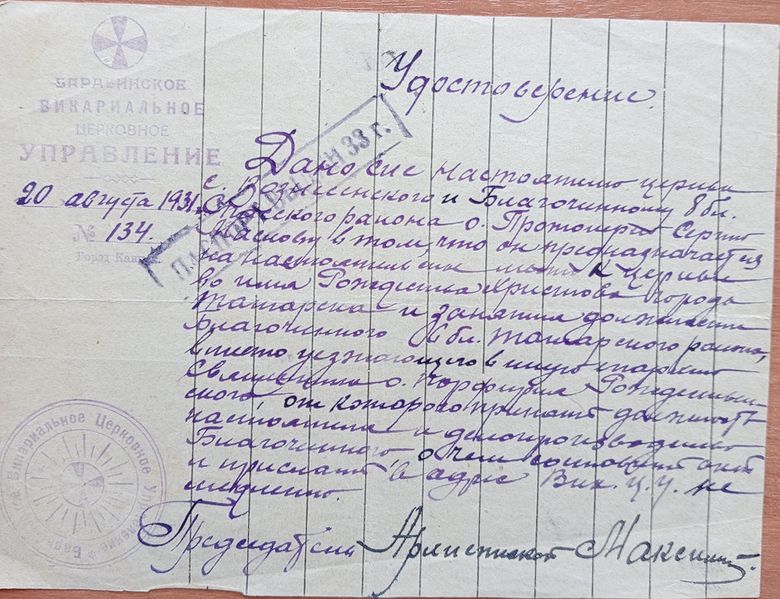 БАРАБИНСКОЕ
ВИКАРИАЛЬНОЕ
ЦЕРКОВНОЕ
УПРАВЛЕНИЕ
20 августа 1931
№ 134.
Город
Удостоверение.
Дано сие настоятелю церкви
с. Вознесенского и Благочинному 8 бл.
района о. Протоиерею Сергию
в том, что он предназначается
на настоятельское место к церкви
во имя Рождества Христова города
Татарска и занятия должности
Благочинного бл. Татарского района,
вместо уезжающего в иную епархию
Священника о. Порфирия Рождествен
ского, от которого принять должность
настоятеля и делопроизводство
Благочинного о чем составить акт
и прислать в адрес Вик. Ц. У. не
медленно.
Председатель Архиепископ Максим
33 г.
Викариальное Церковное Управление